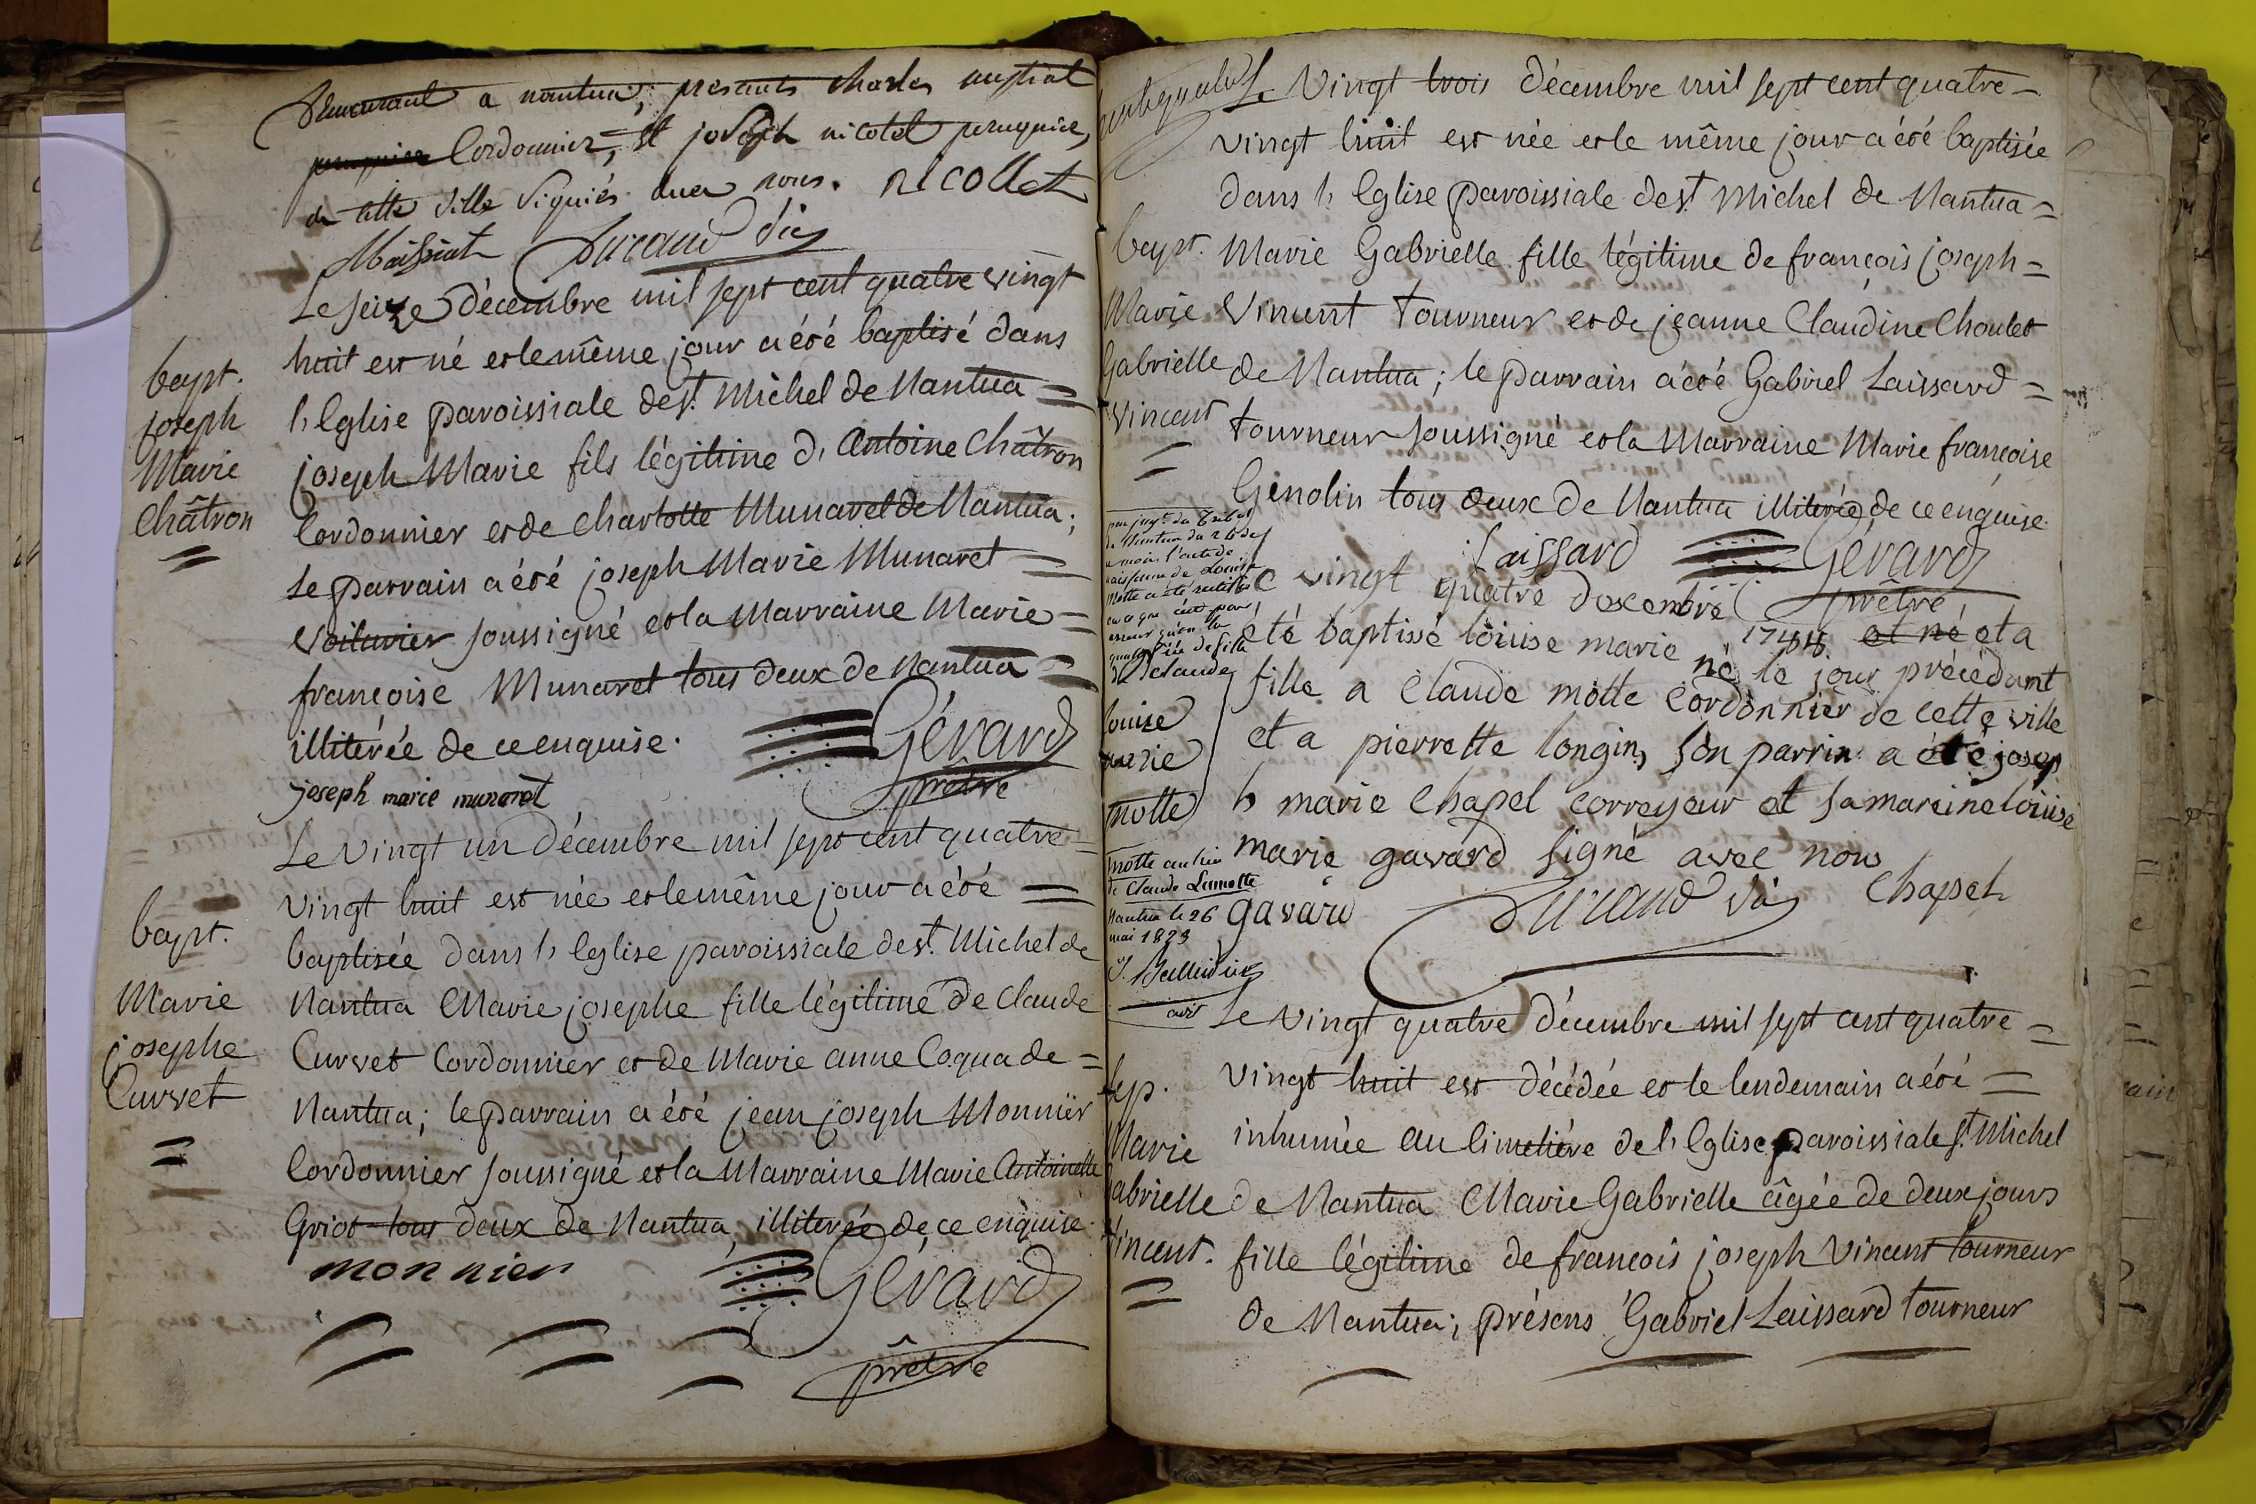 a nantua; presents Charles
Cordonnier, et joseph nicolet perruquier,
de cette ville signiés avec nous. nicollet
Maissiat Durand vic
Le seize décembre mil sept cent quatre vingt
huit est né et le même jour a été baptisé dans
l'Eglise paroissiale de st. Michel de Nantua =
bapt.
joseph
Marie
Châtron
joseph Marie fils légitime d'Antoine Châtron
Cordonnier et de Charlotte Munaret de Nantua;
le parrain a été joseph Marie Munaret =
Voiturier soussigné et la Marraine Marie =
françoise Munaret tous deux de Nantua =
illiterée de ce enquise.
joseph marie munaret Gérard
prêtre
Le vingt un décembre mil sept cent quatre =
vingt huit est née et le même jour a été =
bapt.
Marie
josephe
Curvet
baptisée dans l'Eglise paroissiale de st. Michel de
Nantua Marie josephe fille légitime de Claude
Curvet Cordonnier et de Marie anne Coqua de =
Nantua; le parrain a été jean joseph Monnier
Cordonnier soussigné et la Marraine Marie Antoinette
Griot tous deux de Nantua, illiterée de ce enquise.
monnier Gérard
prêtre
Le Vingt trois décembre mil sept cent quatre =
vingt huit est née et le même jour a été baptisée
dans l'Eglise paroissiale de st. Michel de Nantua =
bapt.
Marie
Gabrielle
Vincent
Marie Gabrielle fille légitime de françois joseph =
Vincent tourneur et de jeanne Claudine Choulet
de Nantua; le parrain a été Gabriel Laissard =
tourneur soussigné et la Marraine Marie françoise
Genolin tous deux de Nantua illiterée de ce enquise.
Laissard Gérard
prêtre
par jugt. du
de Nantua du
l'acte de
naissance de Louise
Motte a été rectifié
en ce que c'est par
erreur qu'on l'a
fille
de Claude
Le vingt quatre decembre 1788 et né et a
été baptissé loiuise marie né le jour précédant
fille a Claude motte Cordonnier de cette ville
et a pierrette longin, son parrin a été josep
h marie Chapel correyeur et sa mareine loiuise
marie gavard signé avec nous
gavard Durand vic Chapel
louise
marie
motte
motte au lieu
de Claude Lamotte
Nantua le 26
mai 1823
Le vingt quatre décembre mil sept cent quatre =
vingt huit est décédée et le lendemain a été =
sep.
Marie
Gabrielle
Vincent.
inhumée au Cimetière de l'Eglise paroissiale st. Michel
de Nantua Marie Gabrielle âgée de deux jours
fille légitime de francois joseph Vincent tourneur
de Nantua; présens Gabriel Laissard tourneur